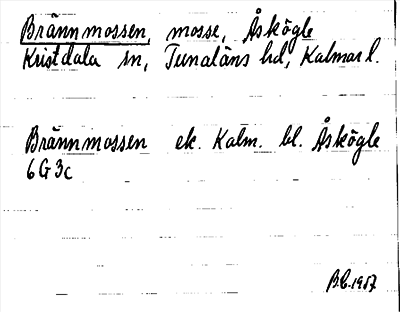 Brännmossen, mosse, Åskögle
Kristdala sn, Tunaläns hd, Kalmar l.
Brännmossen ek. Kalm. bl. Åskögle
6G3c
B.C. 1957